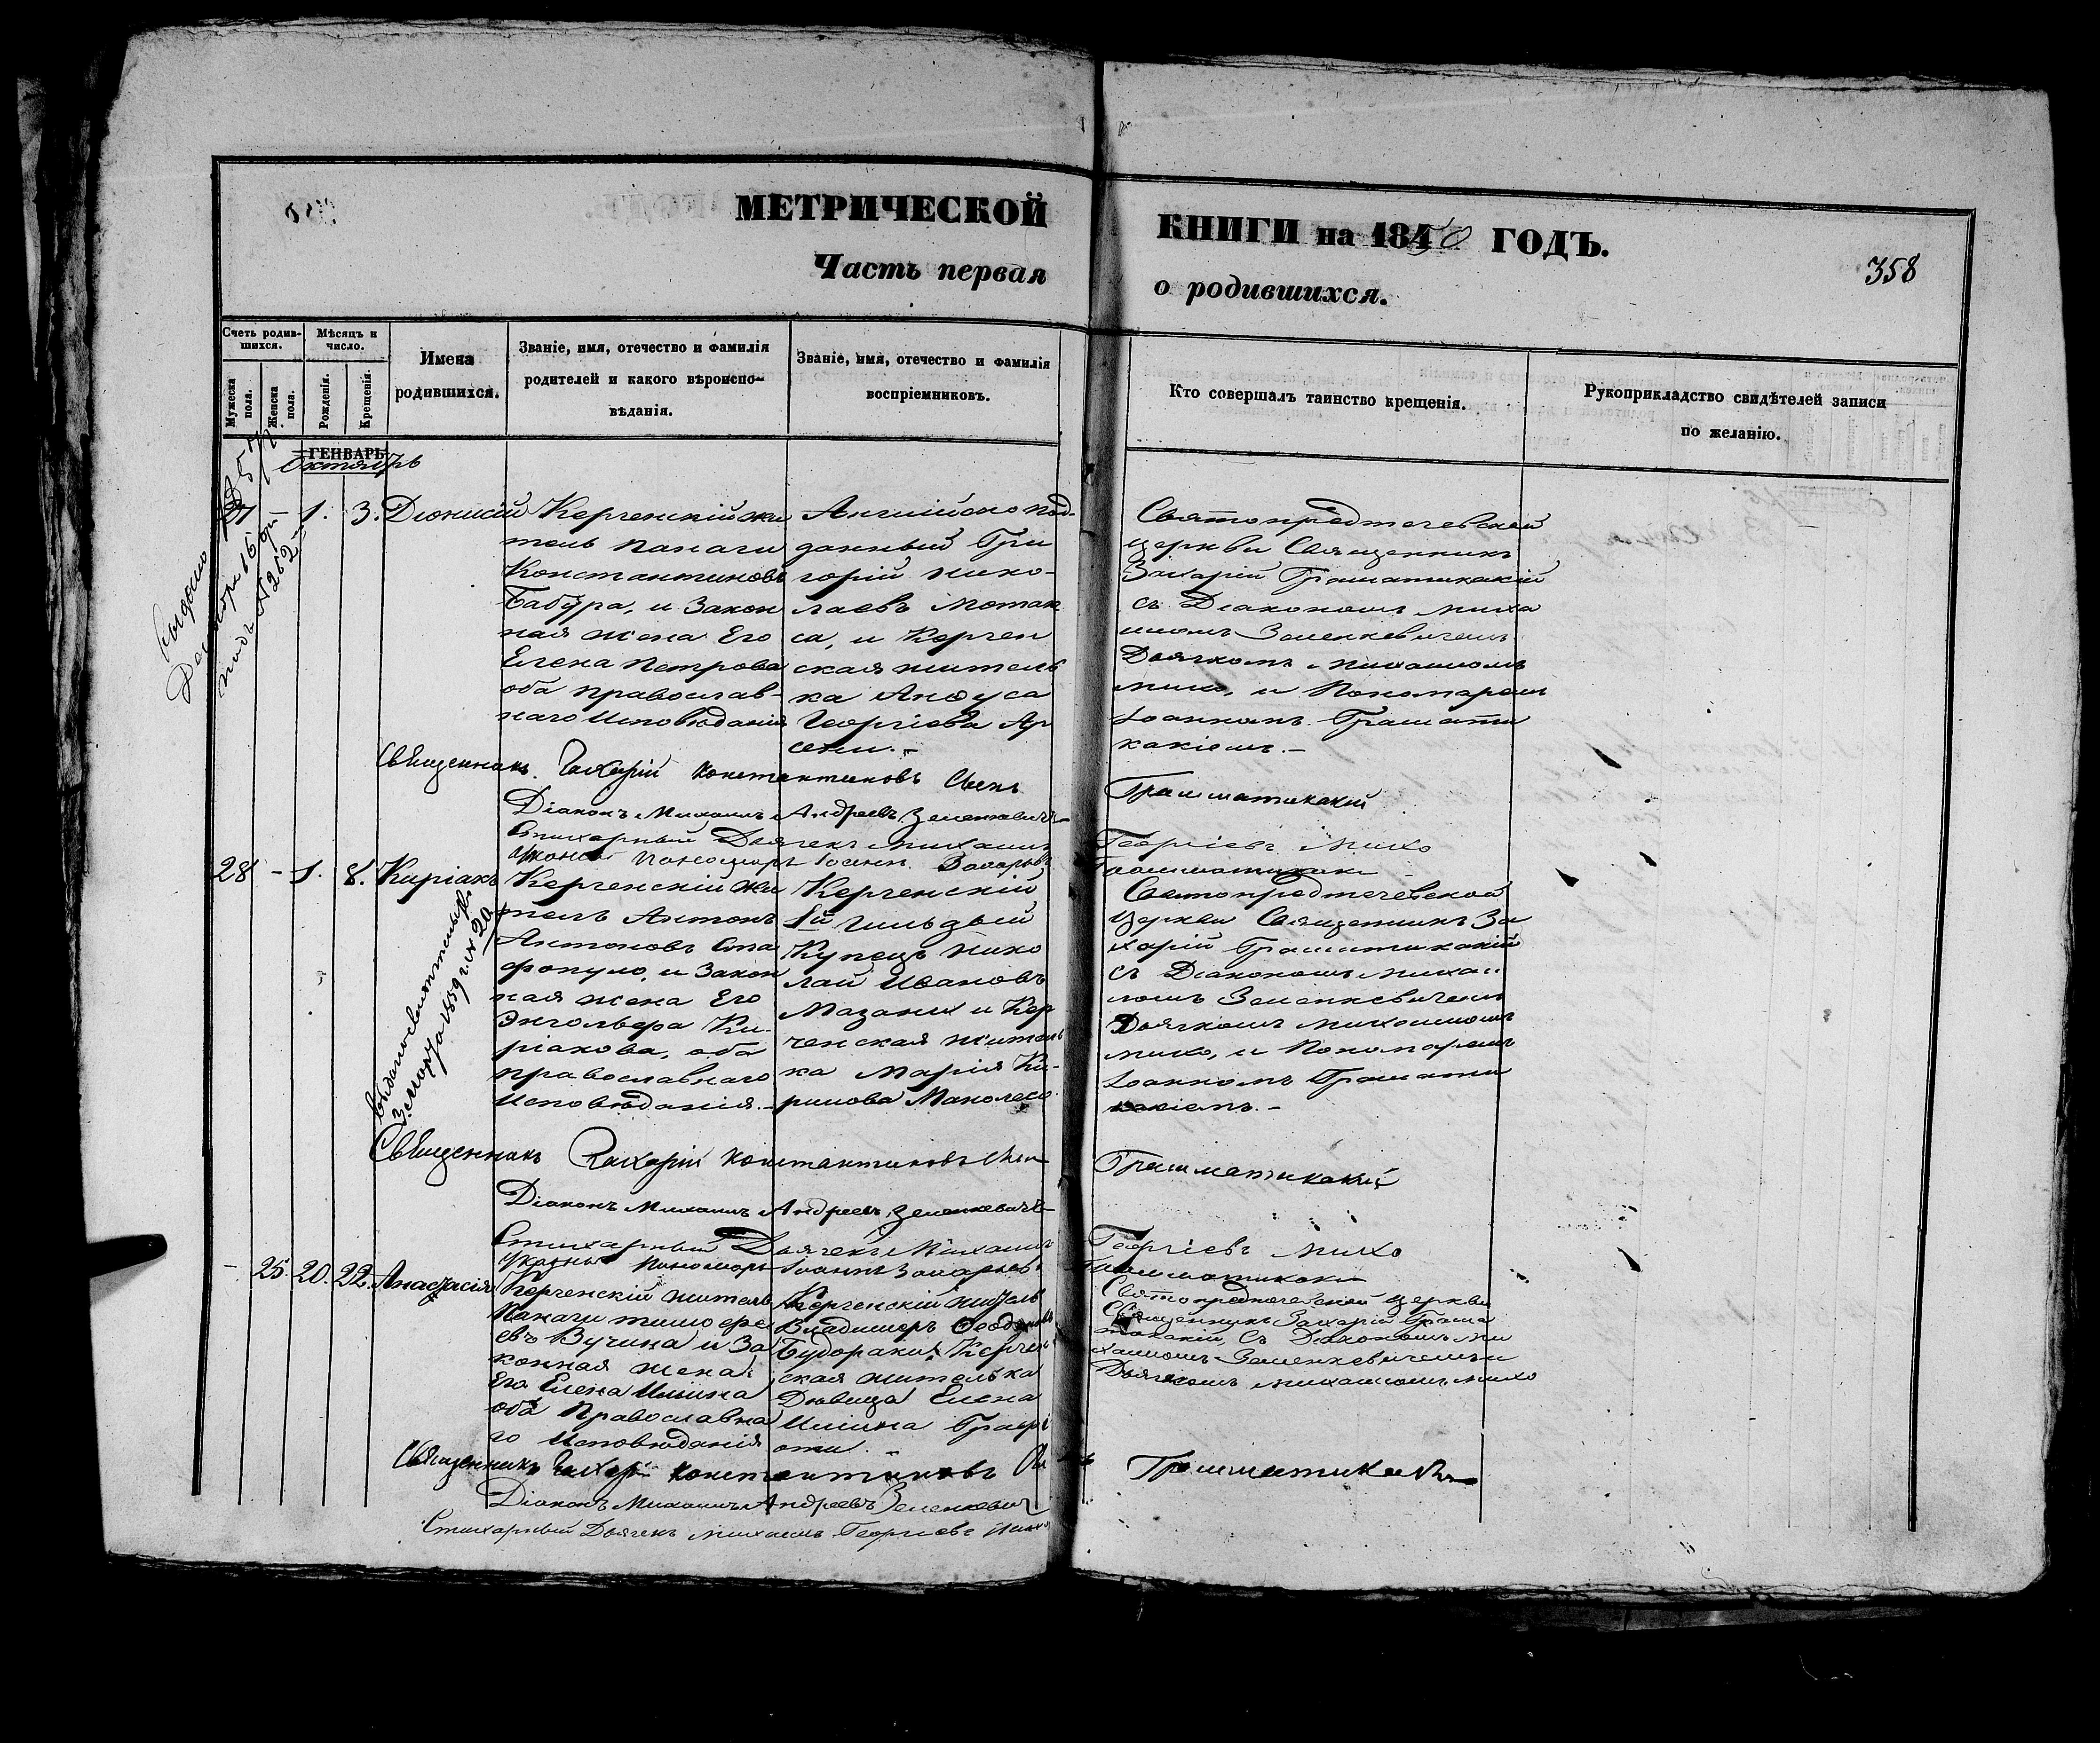 МЕТРИЧЕСКОЙ
Часть первая
КНИГИ на 1850 ГОДЪ.
о родившихся.
358
Счетъ родив-
шихся.
Мѣсяцъ и
число.
Мужеска
пола.
Женска
пола.
Рожденія.
Крещенія.
Имена
родившихся.
Званіе, имя, отечество и фамилія
родителей и какого вѣроиспо-
вѣданія.
Званіе, имя, отечество и фамилія
воспріемниковъ.
Кто совершалъ таинство крещенія.
Рукоприкладство свидѣтелей записи
по желанію.
ГЕНВАРЬ
Октябрь
27 - 1. 3. Діонисій
Керченскій жи
тель Панаги
Константиновъ
Бабура, и Закон
ная жена Его
Елена Петрова
оба православ-
наго Исповѣданія
Англійско под-
данный Гри
горій Нико-
лаевъ Мотак
са, и Керчен
ская житель
ка Анфуса
Георгіева Ар
сени.-
Святопредтечевской
церкви Священникъ
Захарій Граматикакій
съ Діакономъ Миха
иломъ Зеленкевичемъ
Дьячкомъ Михаиломъ
Михо, и Пономаремъ
Іоанномъ Грамати
какіемъ.-
Священникъ Захарій Константиновъ Сынъ Грамматикакій
Діаконъ Михаилъ Андреевъ Зеленкевичъ
Стихарный Дьячекъ Михаилъ Георгіевъ Михо
Пономарь Іоаннъ Захарьевъ Грамматикаки
28 - 1. 8. Киріакъ
Керченскій жи
тель Антонъ
Антоновъ Ста
фопуло, и Закон
ная жена Его
Ки-
ріакова, оба
православнаго
Исповѣданія.-
Керченскій
1й Гильдый
Купецъ Нико
лай Ивановъ
Мазаних и Кер
ченская житель
ка Марія Ки-
рилова
Святопредтечевской
Церкви Священникъ За
харій Граматикакій
съ Діакономъ Михаи
ломъ Зеленкевичемъ
Дьячкомъ Михаиломъ
Михо, и Пономаремъ
Іоанномъ Грамати
какіемъ.-
Священникъ Захарій Константиновъ Сынъ Грамматикакій
Діаконъ Михаилъ Андреевъ Зеленкевичъ
Стихарный Дьячекъ Михаилъ Георгіевъ Михо
Пономарь Іоаннъ Захарьевъ Грамматикаки
- 25. 20. 22. Анастасія
Керченскій житель
Панаги Тимофе
евъ Вучина и За
конная жена
Его Елена Ильина
оба Православна
го Исповѣданія
Керченскій житель
Владимеръ Феодоровъ
Будораки, Керчен
ская жителька
Дѣвица Елена
Ильина
Святопредтечевской церкви
Священникъ Захарій Грама
тикакій, съ Діакономъ Ми
хаиломъ Зеленкевичемъ и
Дьячкомъ Михаиломъ Михо
Священникъ Захарій Константиновъ Сынъ Грамматикакій
Діаконъ Михаилъ Андреевъ Зеленкевичъ
Стихарный Дьячекъ Михаилъ Георгіевъ Михо